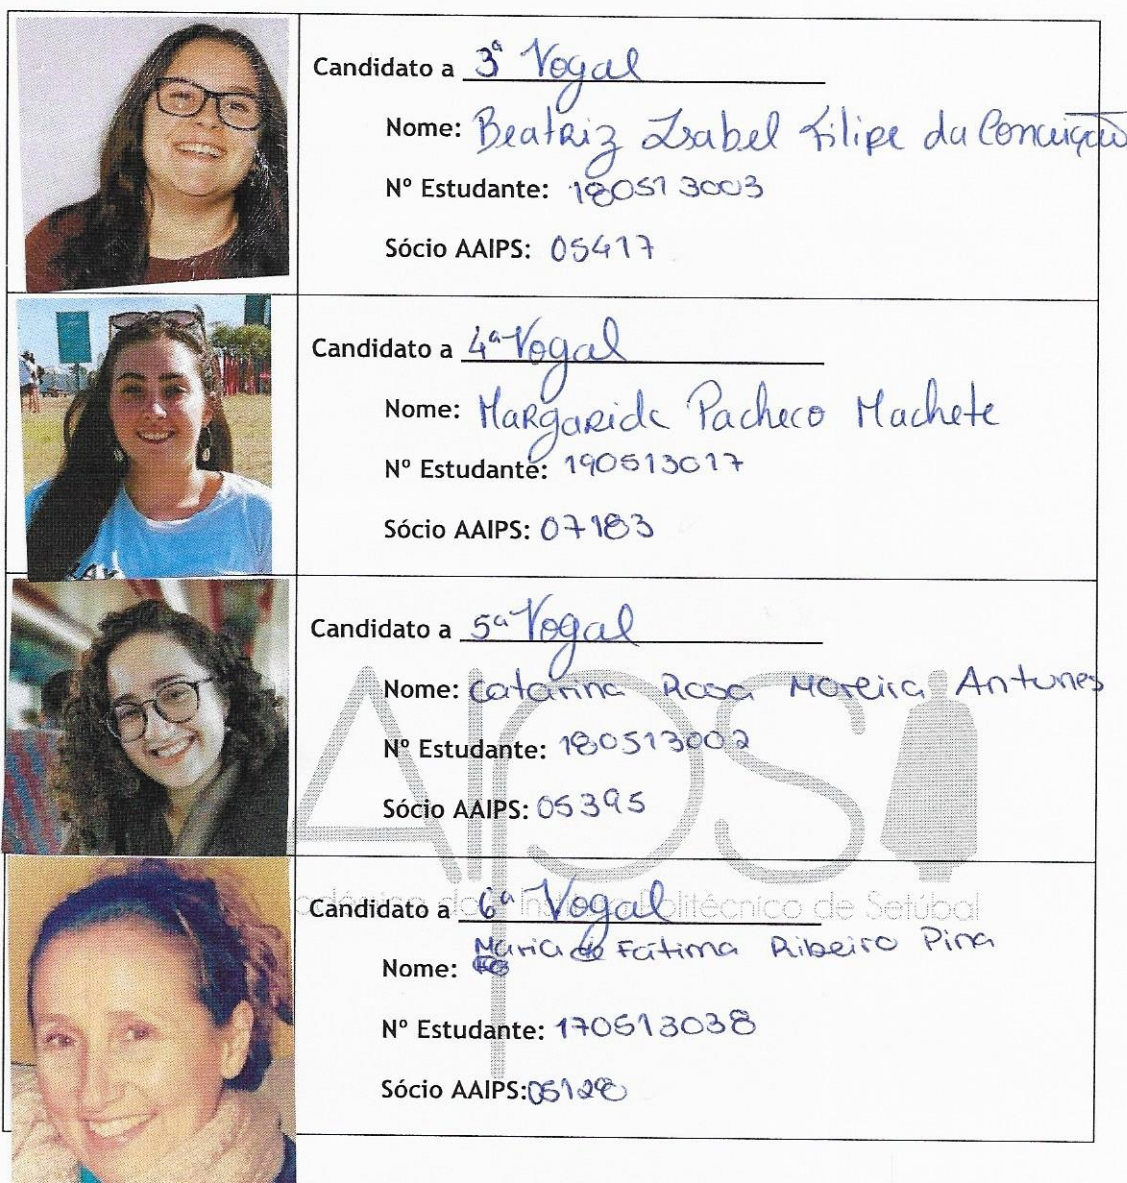 Candidato a 3ª Vogal
Nome: Beatriz Isabel Filipe da Conceição
Nº Estudante: 180513003
Sócio AAIPS: 05417
Candidato a 4ª Vogal
Nome: Margarida Pacheco Machete
Nº Estudante: 190513017
Sócio AAIPS: 07183
Candidato a 5ª Vogal
Nome: Catarina Rosa Moreira Antunes
Nº Estudante: 180513002
Sócio AAIPS: 05395
AIPS
Candidato a 6ª Vogal
Politécnico de Setúbal
Nome: Maria de Fátima Ribeiro Pina
Nº Estudante: 170513038
Sócio AAIPS: 05128